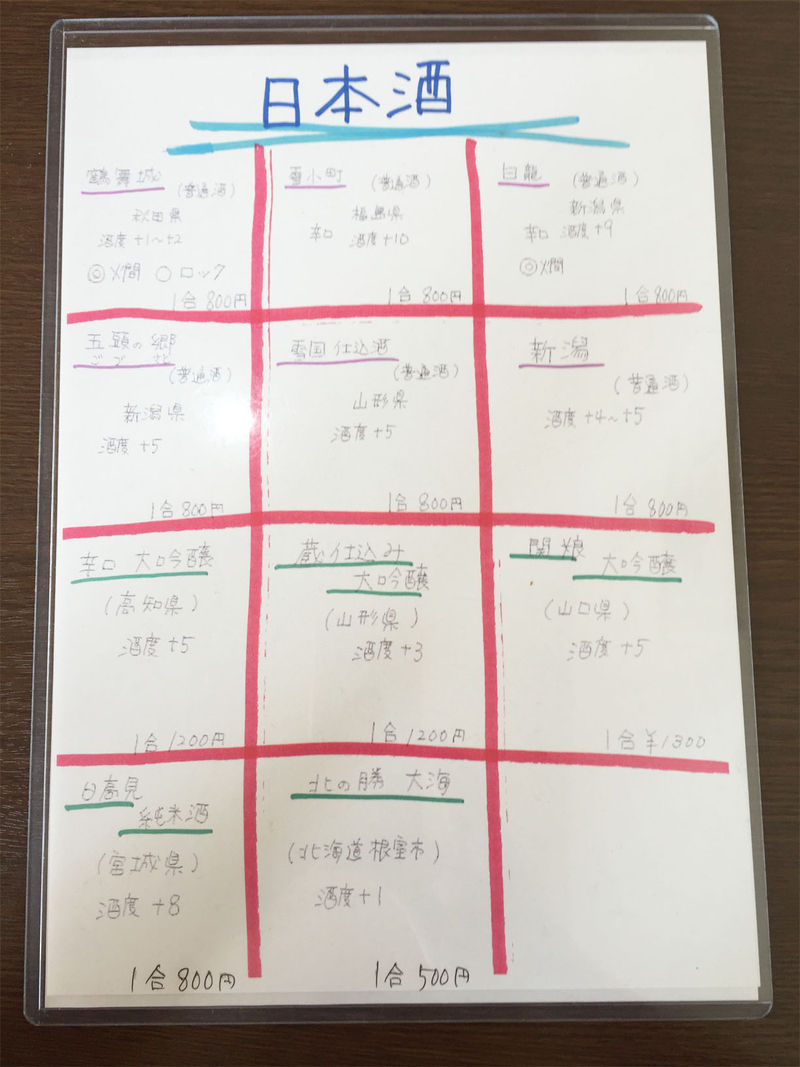 日本酒
鶴舞城
(普通酒)
秋田県
酒度 +1~+2
◎燗 ○ロック
1合 800円
雪小町
(普通酒)
福島県
辛口 酒度 +10
1合 800円
白龍
(普通酒)
新潟県
辛口 酒度 +9
◎燗
1合 800円
五頭の郷
ごづ さと
(普通酒)
新潟県
酒度 +5
1合 800円
雪国仕込酒
(普通酒)
山形県
酒度 +5
1合 800円
新潟
(普通酒)
酒度 +4~+5
1合 800円
辛口 大吟醸
(高知県)
酒度 +5
1合 1200円
蔵仕込み
大吟醸
(山形県)
酒度 +3
1合 1200円
関娘
大吟醸
(山口県)
酒度 +5
1合 ¥1300
日高見
純米酒
(宮城県)
酒度 +8
1合 800円
北の勝 大海
(北海道根室市)
酒度 +1
1合 500円